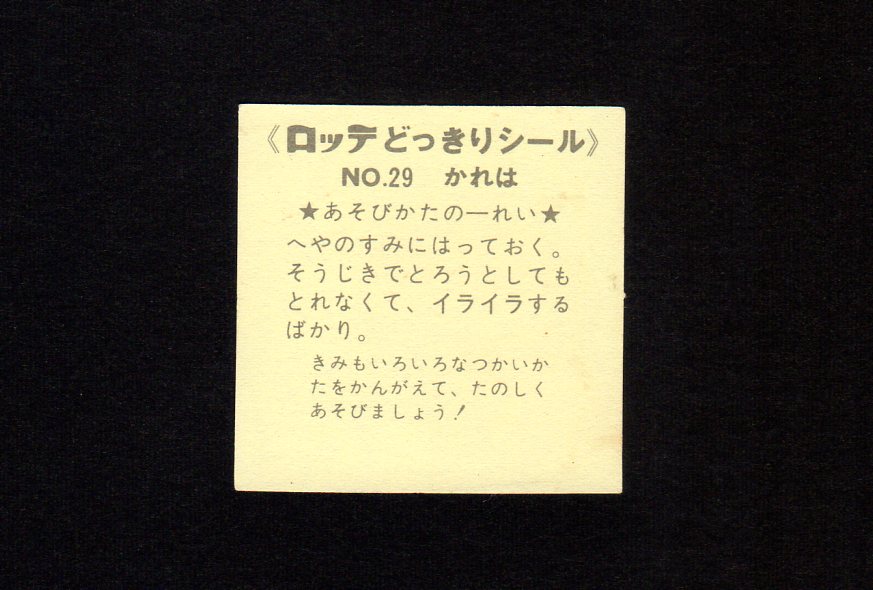 《ロッテどっきりシール》
NO.29 かれは
★あそびかたの一れい★
へやのすみにはっておく。
そうじきでとろうとしても
とれなくて、イライラする
ばかり。
きみもいろいろなつかいか
たをかんがえて、たのしく
あそびましょう!